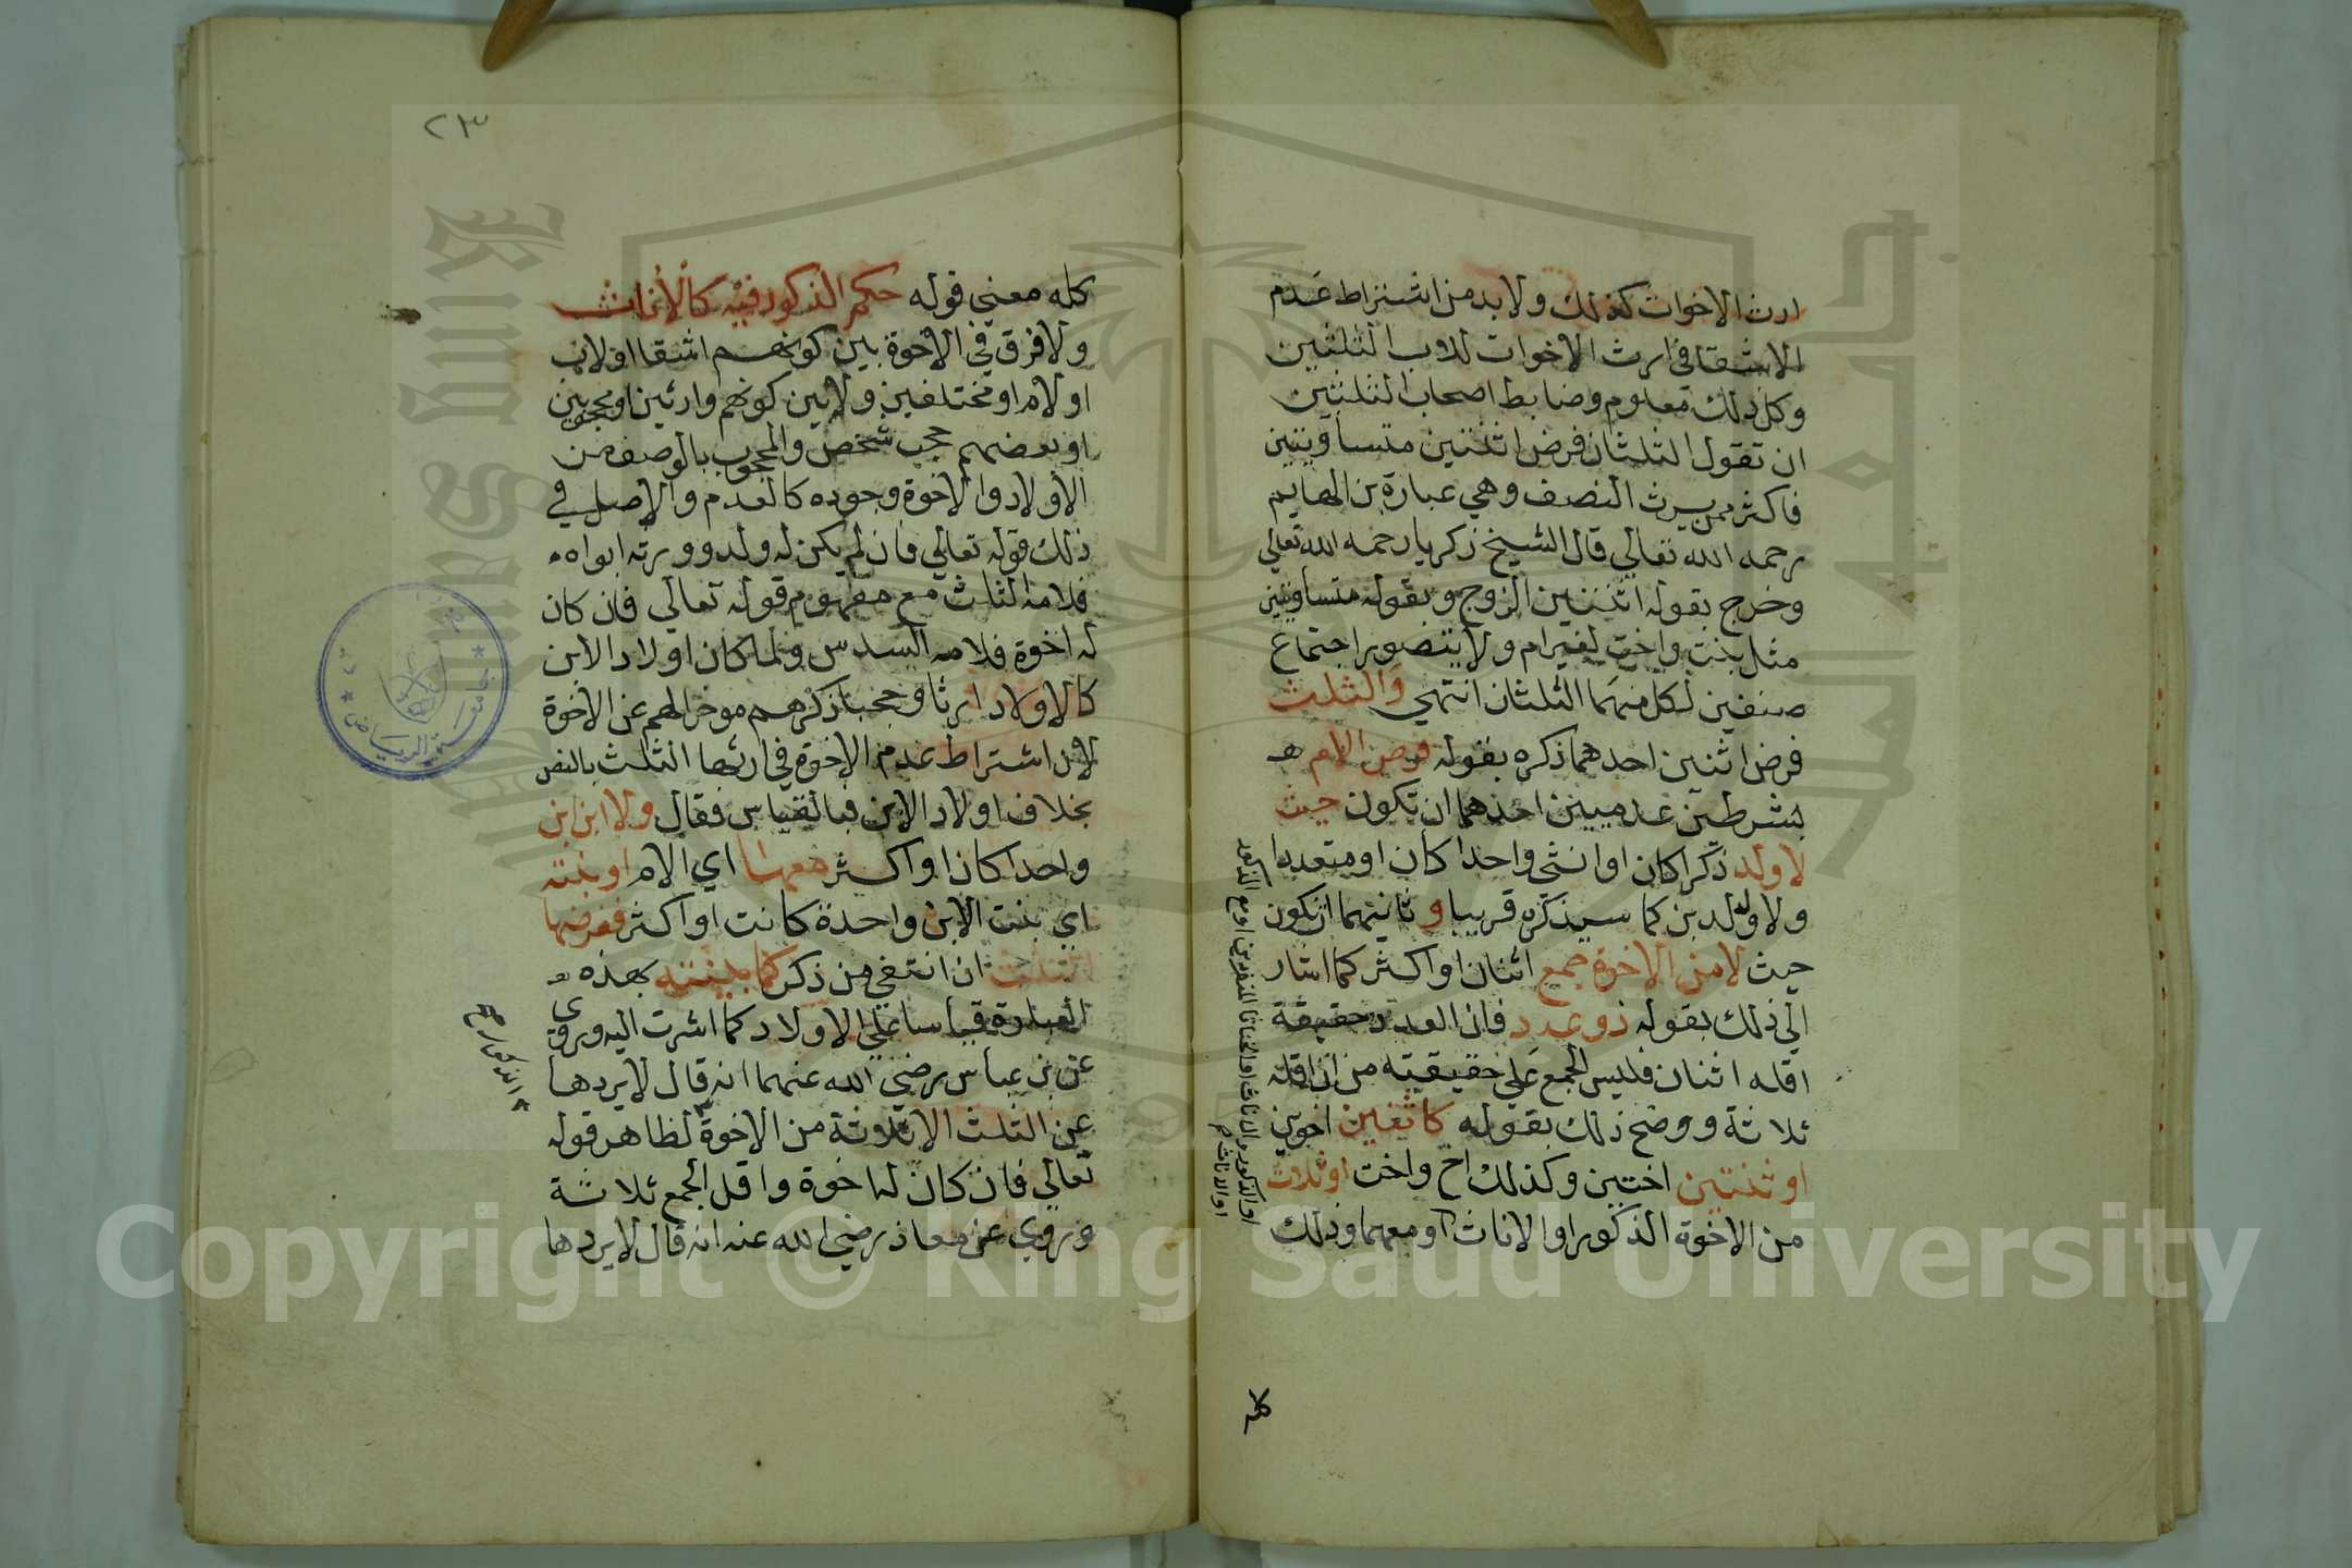 ارث الاخوات كذلك ولابد من اشتراط عدم
الاشقا في ارث الاخوات للاب الثلثين
وكل ذلك معلوم وضابط اصحاب الثلثين
ان تقول الثلثان فرض اثنتين متساويتين
فاكثر ممن يرث النصف وهي عبارة بن الهايم
رحمه الله تعالي قال الشيخ زكريا رحمه الله تعالي
وخرج بقوله اثنتين الزوج وبقوله متساويتين
مثل بنت واخت لغير ام ولا يتصور اجتماع
صنفين لكل منهما الثلثان انتهي والثلث
فرض اثنين احدهما ذكره بقوله فرض الام
بشرطين عدميين احدهما ان تكون حيث
لا ولد ذكرا كان او انثي واحدا كان او متعددا
ولا ولد بن كما سيذكره قريبا و ثانيهما ان تكون
حيث لا من الاخوة جمع اثنان او اكثر كما اشار
الي ذلك بقوله ذو عدد فان العدد حقيقة
اقله اثنان فليس الجمع علي حقيقته من ان اقله
ثلاثة ووضح ذلك بقوله كاثنين اخوين
او ثنتين اختين وكذلك اخ واخت او ثلاث
من الاخوة الذكور او الاناث او معهما وذلك
او الذكور والاناث او الخناثا المنفردين او مع الذكور
او الاناث
كله
٢٣
كله معني قوله حكم الذكور فيه كالاناث
ولا فرق في الاخوة بين كونهم اشقا او لاب
او لام او مختلفين ولا بين كونهم وارثين او محجوبين
او بعضهم حجب شخص والمحجوب بالوصف من
الاولاد والاخوة وجوده كالعدم والاصل في
ذلك قوله تعالي فان لم يكن له ولد وورثه ابواه
فلامه الثلث مع مفهوم قوله تعالي فان كان
له اخوة فلامه السدس ولما كان اولاد الابن
كالاولاد ارثا وحجبا ذكرهم موخرا لهم عن الاخوة
لان اشتراط عدم الاخوة في ارثها الثلث بالنص
بخلاف اولاد الابن فبالقياس فقال ولا ابن ابن
واحدا كان او اكثر معها اي الام او بنته
اي بنت الابن واحدة كانت او اكثر ففرضها
الثلث ان انتفي من ذكر كما بينته بهذه
العبارة قياسا علي الاولاد كما اشرت اليه وروي
عن بن عباس رضي الله عنهما انه قال لا يردها
عن الثلث الا ثلاثة من الاخوة لظاهر قوله
تعالي فان كان له اخوة واقل الجمع ثلاثة
وروي عن معاذ رضي الله عنه انه قال لا يردها
الذكور صح
جامعة الرياض
Copyright © King Saud University